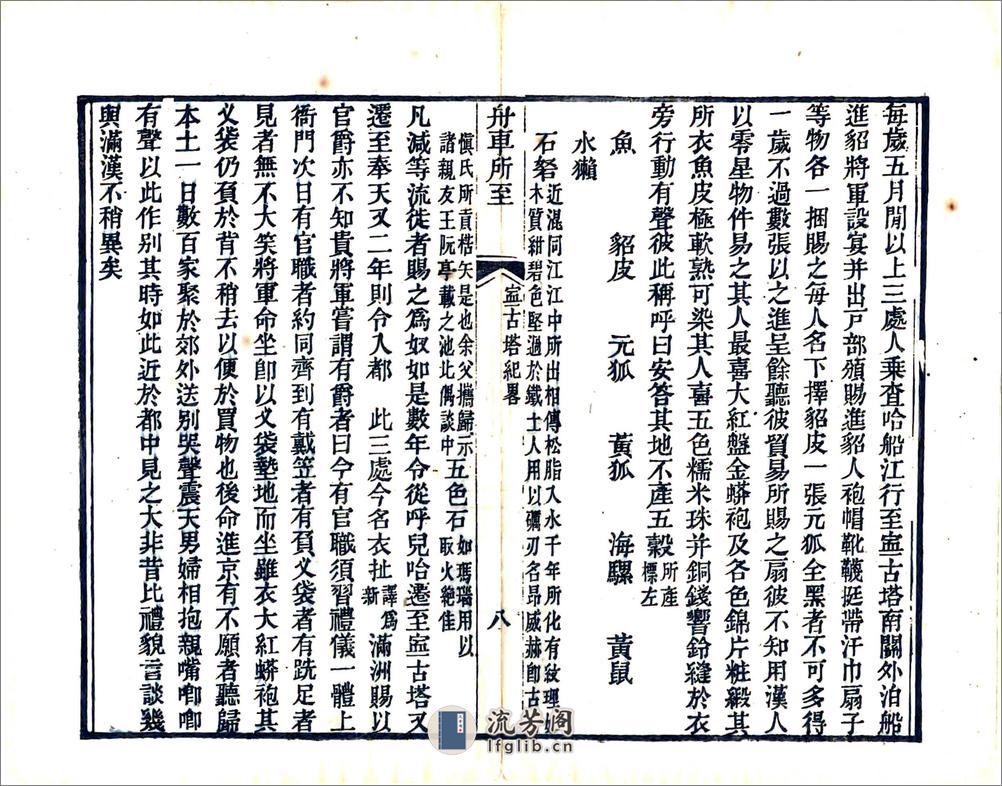 每歲五月間以上三處人乘查哈船江行至寧古塔南關外泊船
進貂將軍設宴并出戶部頒賜進貂人袍帽靴韈挺帶汗巾扇子
等物各一捆賜之每人名下擇貂皮一張元狐全黑者不可多得
一歲不過數張以之進呈餘聽彼貿易所賜之扇彼不知用漢人
以零星物件易之其人最喜大紅盤金蟒袍及各色錦片粧緞其
所衣魚皮極軟熟可染其人喜五色糯米珠并銅錢響鈴縫於衣
旁行動有聲彼此稱呼曰安答其地不產五穀所產標左
魚 貂皮 元狐 黃狐 海騾 黃鼠
水獺
石砮近混同江江中所出相傳松脂入水千年所化有紋理如
木質紺碧色堅過於鐵土人用以礪刃名昂威赫卽古
舟車所至 寧古塔紀畧 八
愼氏所貢楛矢是也余父攜歸示
諸親友王阮亭載之池北偶談中 五色石如瑪瑙用以取火絕佳
凡減等流徙者賜之爲奴如是數年令從呼兒哈遷至寧古塔又
遷至奉天又二年則令入都 此三處今名衣扯譯爲新滿洲賜以
官爵亦不知貴將軍嘗謂有爵者曰今有官職須習禮儀一體上
衙門次日有官職者約同齊到有戴笠者有負乂袋者有跣足者
見者無不大笑將軍命坐卽以乂袋墊地而坐雖衣大紅蟒袍其
乂袋仍負於背不稍去以便於買物也後命進京有不願者聽歸
本土一日數百家聚於郊外送別哭聲震天男婦相抱親嘴唧唧
有聲以此作別其時如此近於都中見之大非昔比禮貌言談幾
與滿漢不稍異矣
流芳閣
lfglib.cn